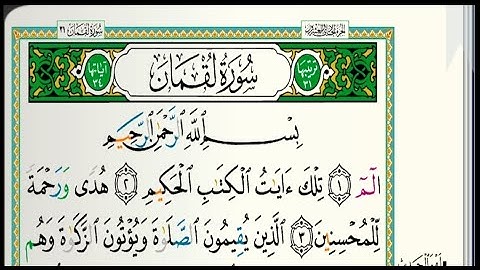 سُورَةُ لُقْمَان ٣١
سُورَةُ لُقْمَانَ
ترتيبها ٣١
آياتها ٣٤
بِسْمِ ٱللَّهِ ٱلرَّحْمَٰنِ ٱلرَّحِيمِ
الٓمٓ ۝١ تِلْكَ ءَايَٰتُ ٱلْكِتَٰبِ ٱلْحَكِيمِ ۝٢ هُدًى وَرَحْمَةً
لِّلْمُحْسِنِينَ ۝٣ ٱلَّذِينَ يُقِيمُونَ ٱلصَّلَوٰةَ وَيُؤْتُونَ ٱلزَّكَوٰةَ وَهُم